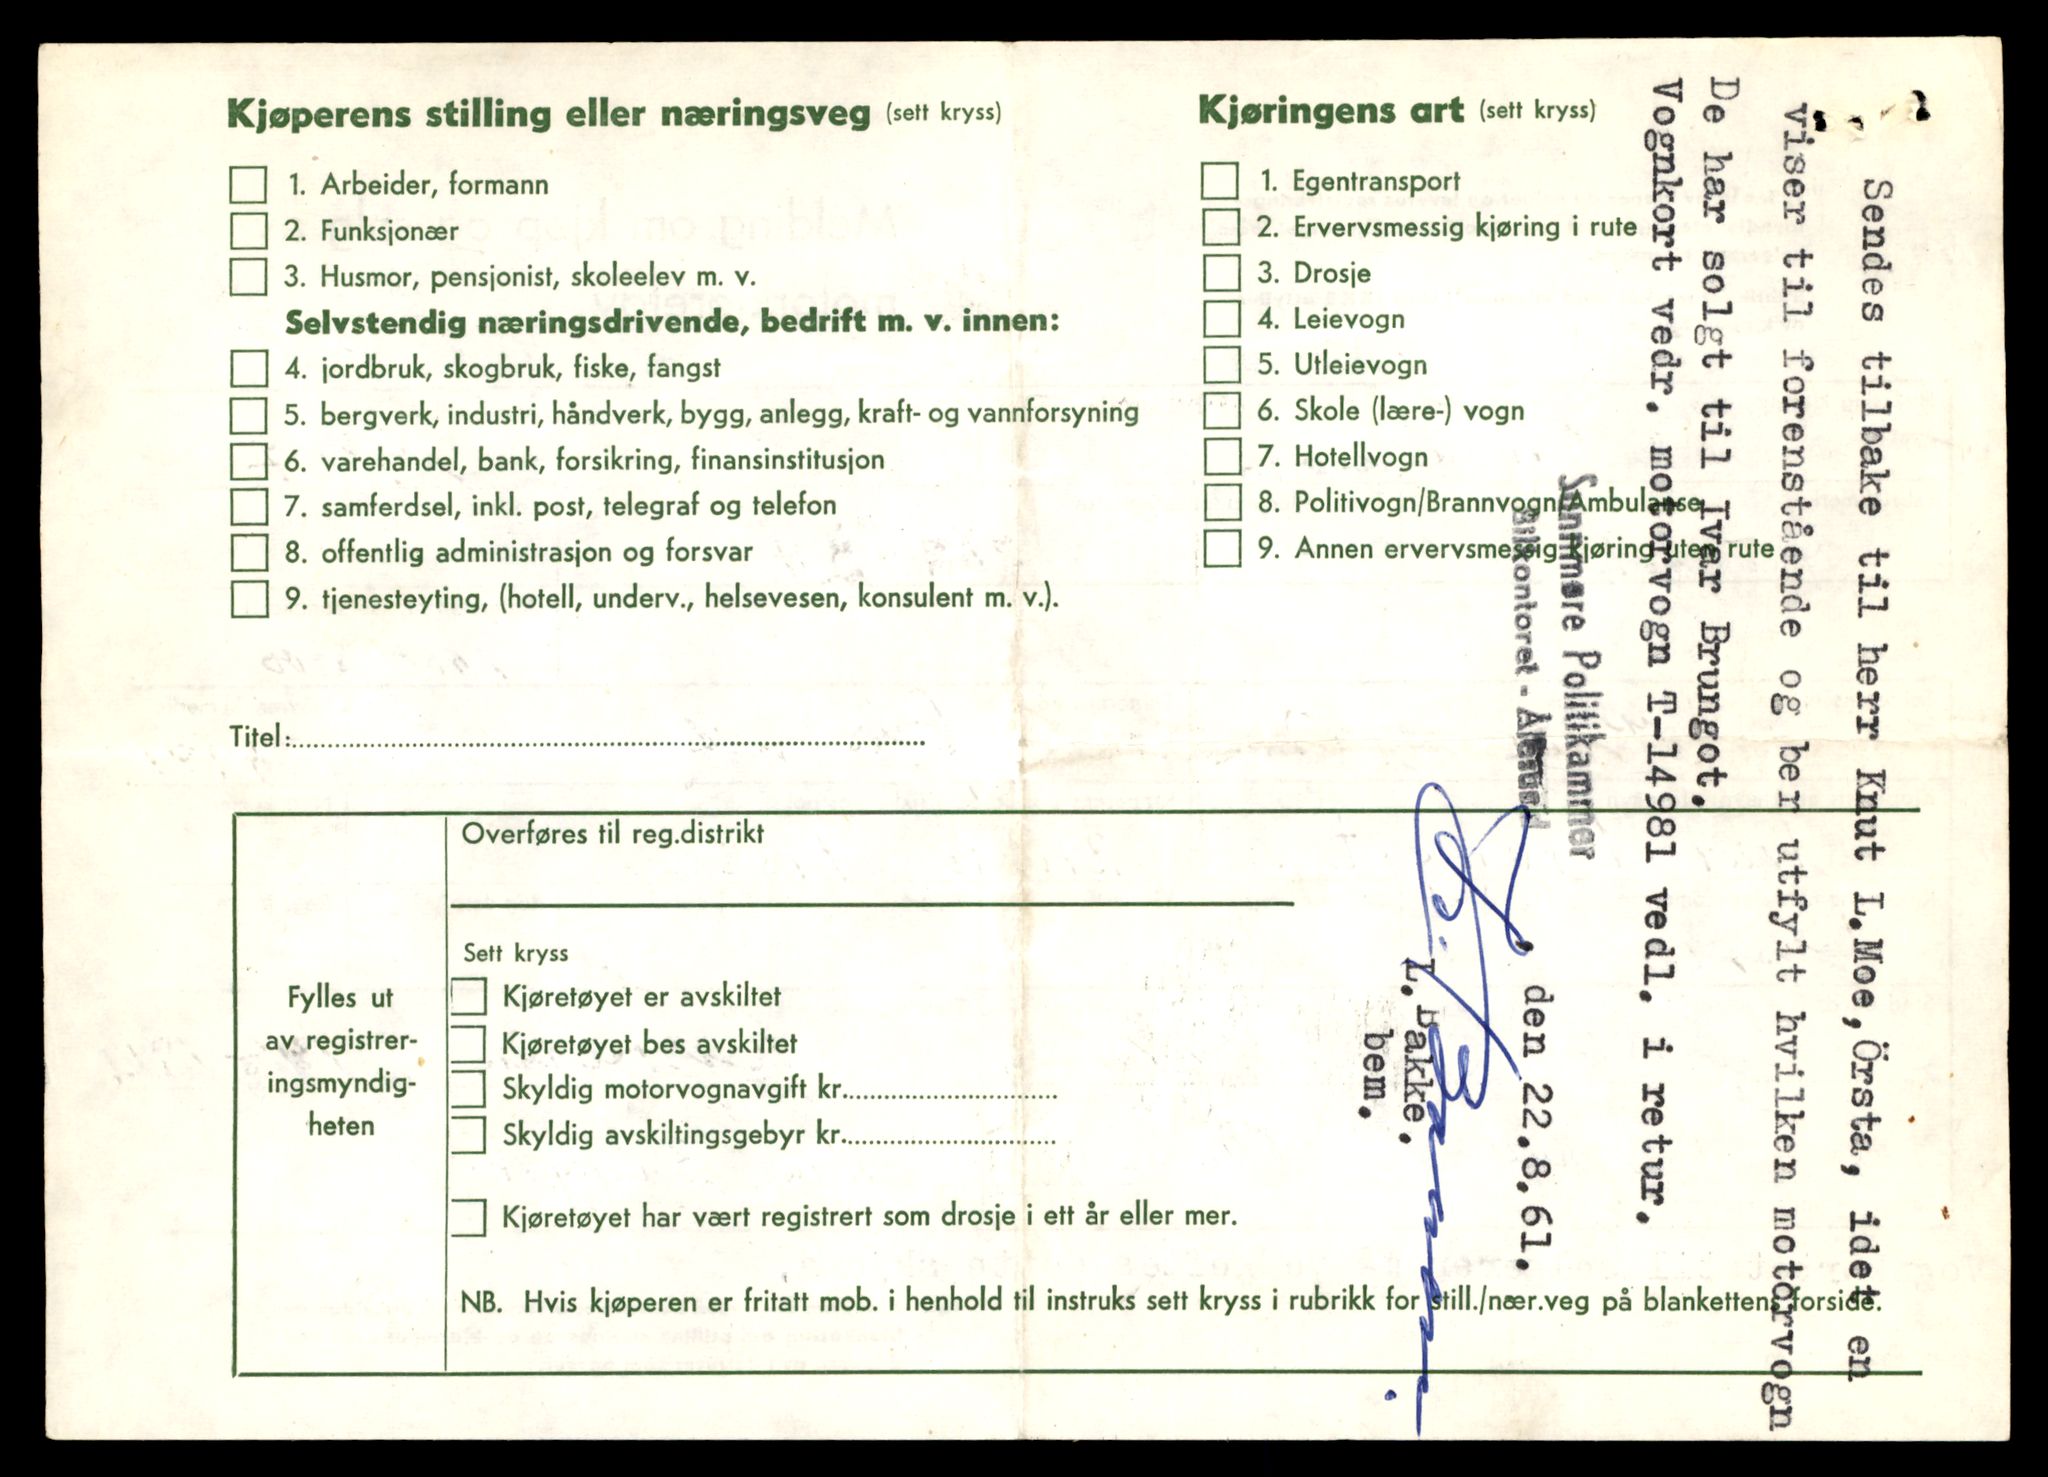 Kjøperens stilling eller næringsveg (sett kryss)
1. Arbeider, formann
2. Funksjonær
3. Husmor, pensjonist, skoleelev m. v.
Selvstendig næringsdrivende, bedrift m. v. innen:
4. jordbruk, skogbruk, fiske, fangst
5. bergverk, industri, håndverk, bygg, anlegg, kraft- og vannforsyning
6. varehandel, bank, forsikring, finansinstitusjon
7. samferdsel, inkl. post, telegraf og telefon
8. offentlig administrasjon og forsvar
9. tjenesteyting, (hotell, underv., helsevesen, konsulent m. v.).
Titel:
Kjøringens art (sett kryss)
1. Egentransport
2. Ervervsmessig kjøring i rute
3. Drosje
4. Leievogn
5. Utleievogn
6. Skole (lære-) vogn
7. Hotellvogn
8. Politivogn/Brannvogn/Ambulanse
9. Annen ervervsmessig kjøring uten rute
Fylles ut
av registrer-
ingsmyndig-
heten
Overføres til reg.distrikt
Sett kryss
Kjøretøyet er avskiltet
Kjøretøyet bes avskiltet
Skyldig motorvognavgift kr.
Skyldig avskiltingsgebyr kr.
Kjøretøyet har vært registrert som drosje i ett år eller mer.
NB. Hvis kjøperen er fritatt mob. i henhold til instruks sett kryss i rubrikk for still./nær.veg på blankettens forside.
Sendes tilbake til herr Knut L.Moe,Örsta, idet en
viser til forenstående og ber utfylt hvilken motorvogn
De har solgt til Ivar Brungot.
Vognkort vedr. motorvogn T-14981 vedl. i retur.
Sunnmøre Politikammer
Bilkontoret - Ålesund
, den 22.8.61.
L. Bakke.
bem.